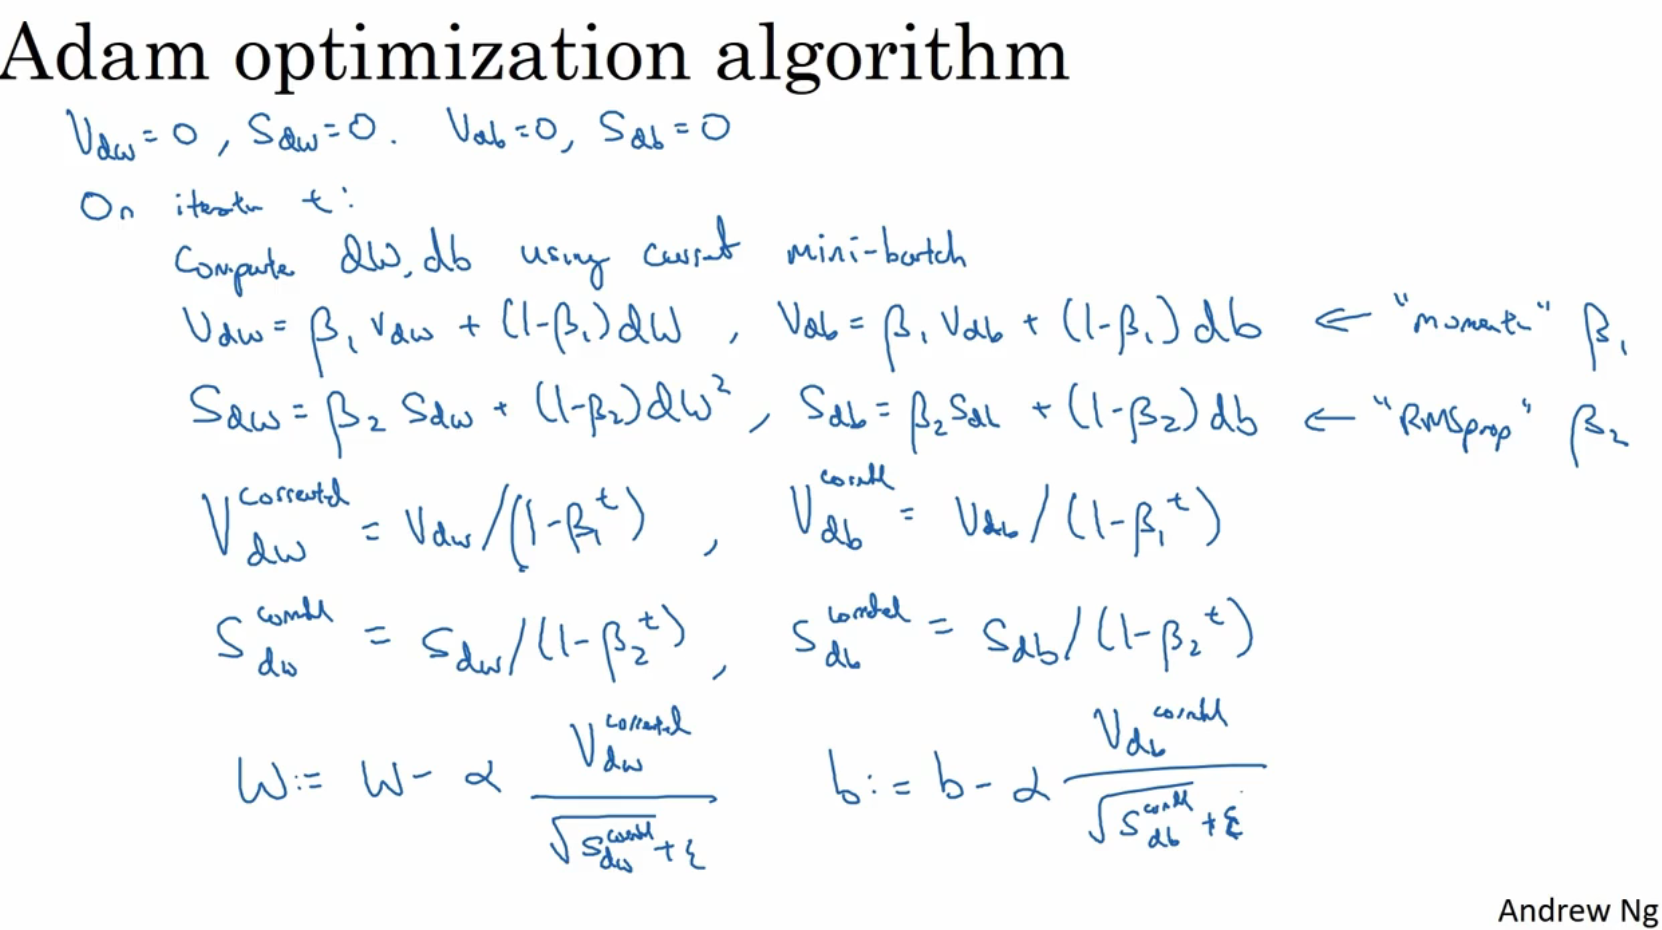 Adam optimization algorithm
V_dw = 0, S_dw = 0. V_db = 0, S_db = 0
On iteratn t:
Compute dW, db using current mini-batch
V_dw = β_1 V_dw + (1-β_1) dW, V_db = β_1 V_db + (1-β_1) db ← "momentn" β_1
S_dw = β_2 S_dw + (1-β_2) dW², S_db = β_2 S_db + (1-β_2) db ← "RMSprop" β_2
V_dw^corrected = V_dw/(1-β_1^t), V_db^corrected = V_db/(1-β_1^t)
S_dw^corrected = S_dw/(1-β_2^t), S_db^corrected = S_db/(1-β_2^t)
W := W - α V_dw^corrected / (√S_dw^corrected + ε) b := b - α V_db^corrected / (√S_db^corrected + ε)
Andrew Ng